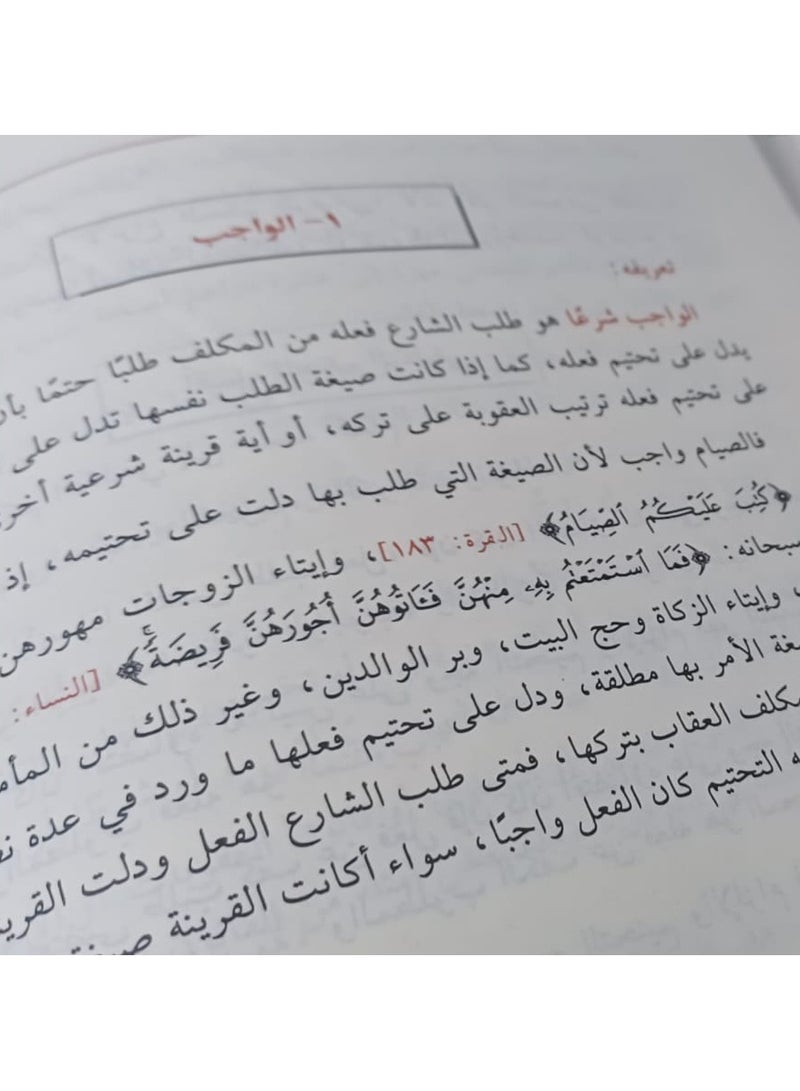 ١- الواجب
تعريفه:
الواجب شرعًا هو طلب الشارع فعله من المكلف طلبًا حتمًا بأن
يدل على تحتيم فعله، كما إذا كانت صيغة الطلب نفسها تدل على
على تحتيم فعله ترتيب العقوبة على تركه، أو أية قرينة شرعية أخرى
فالصيام واجب لأن الصيغة التي طلب بها دلت على تحتيمه، إذ
﴿كُتِبَ عَلَيْكُمُ ٱلصِّيَامُ﴾ [البقرة: ١٨٣]، وإيتاء الزوجات مهورهن
سبحانه: ﴿فَمَا ٱسْتَمْتَعْتُم بِهِۦ مِنْهُنَّ فَـَٔاتُوهُنَّ أُجُورَهُنَّ فَرِيضَةً ۚ﴾ [النساء:
وإيتاء الزكاة وحج البيت، وبر الوالدين، وغير ذلك من
صيغة الأمر بها مطلقة، ودل على تحتيم فعلها ما ورد في عدة
المكلف العقاب بتركها، فمتى طلب الشارع الفعل ودلت
التحتيم كان الفعل واجبًا، سواء أكانت القرينة